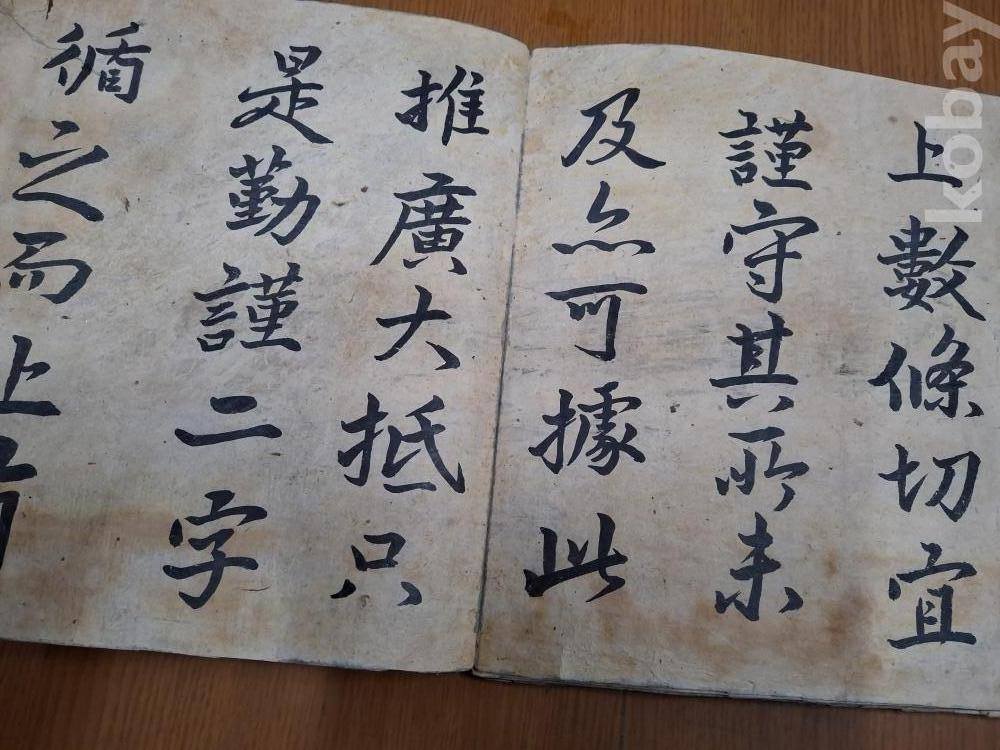 上數條切宜
謹守其所未
及亦可據此
推廣大抵只
是勤謹二字
循之而上有
kobay